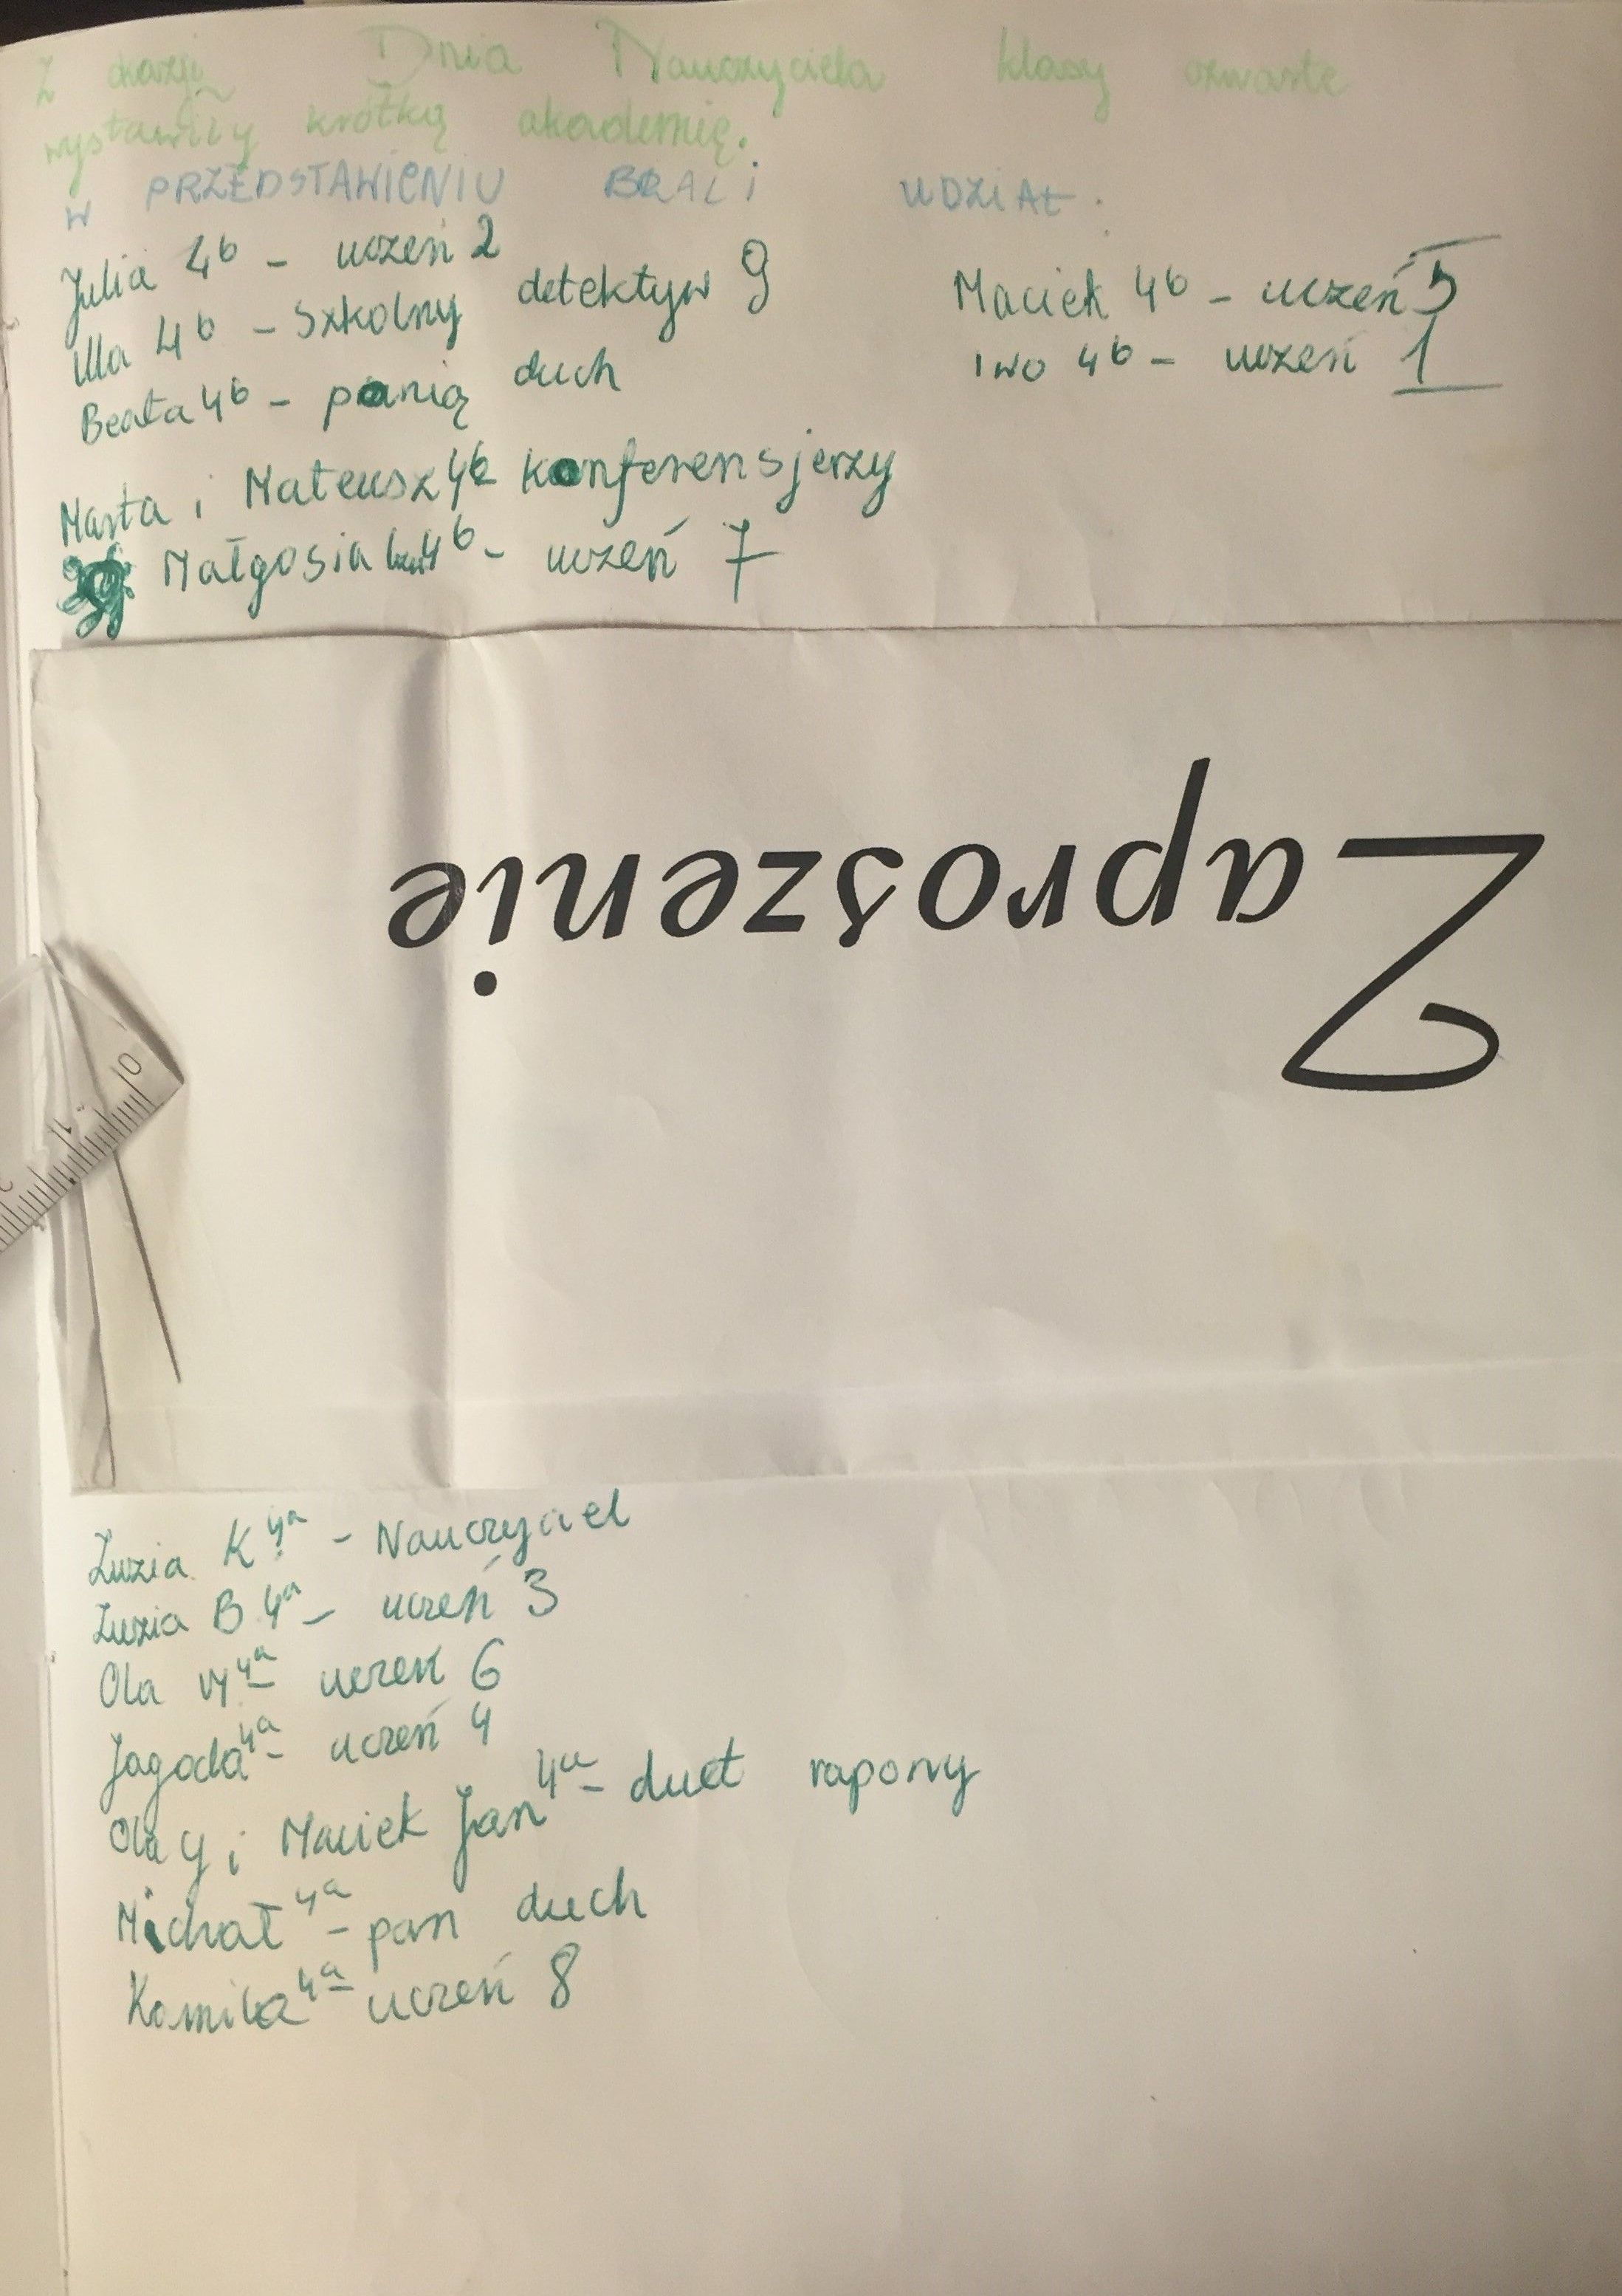 Z okazji Dnia Nauczyciela klasy czwarte
wystawiły krótką akademię.
W PRZEDSTAWIENIU BRALi UDZiAŁ:
Julia 4b - uczeń 2
Ula 4b - Szkolny detektyw 9
Beata 4b - panią duch
Maciek 4b - uczeń 5
iwo 4b - uczeń 1
Marta i Mateusz 4b konferensjerzy
Małgosia 4b - uczeń 7
Zaproszenie
0
1
Zuzia K 4a - Nauczyciel
Zuzia B 4a - uczeń 3
Ola W 4a - uczeń 6
Jagoda 4a - uczeń 4
Ola y i Maciek Jan 4a - duet rapowy
Michał 4a - pan duch
Kamila 4a - uczeń 8